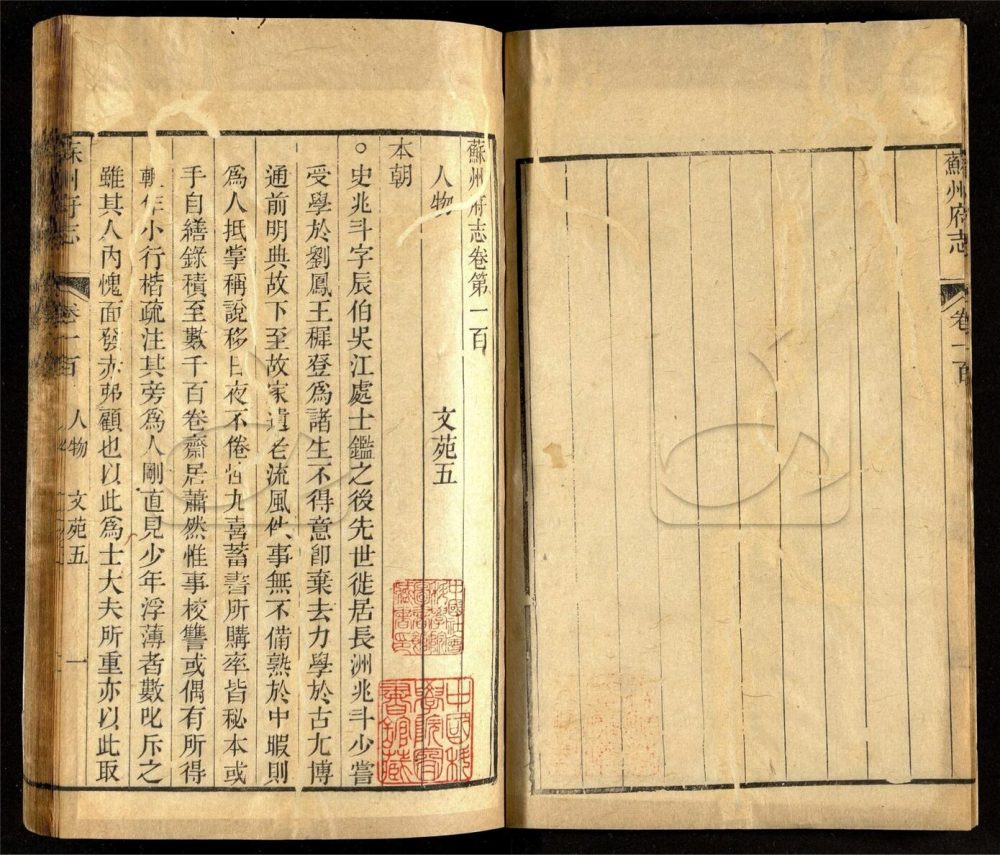 蘇州府志
卷一百
蘇州府志卷第一百
人物 文苑五
本朝
○史兆斗字辰伯吳江處士鑑之後先世徙居長洲兆斗少嘗
受學於劉鳳王穉登爲諸生不得意卽棄去力學於古尤博
通前明典故下至故家遺老流風佚事無不備熟於中暇則
爲人抵掌稱說移日夜不倦性尤喜蓄書所購率皆秘本或
手自繕錄積至數千百卷齋居蕭然惟事校讐或偶有所得
輒作小行楷疏注其旁爲人剛直見少年浮薄者數叱斥之
雖其人內愧面發赤弗顧也以此爲士大夫所重亦以此取
蘇州府志 卷一百 人物 文苑五 一
中國科學院圖書館藏